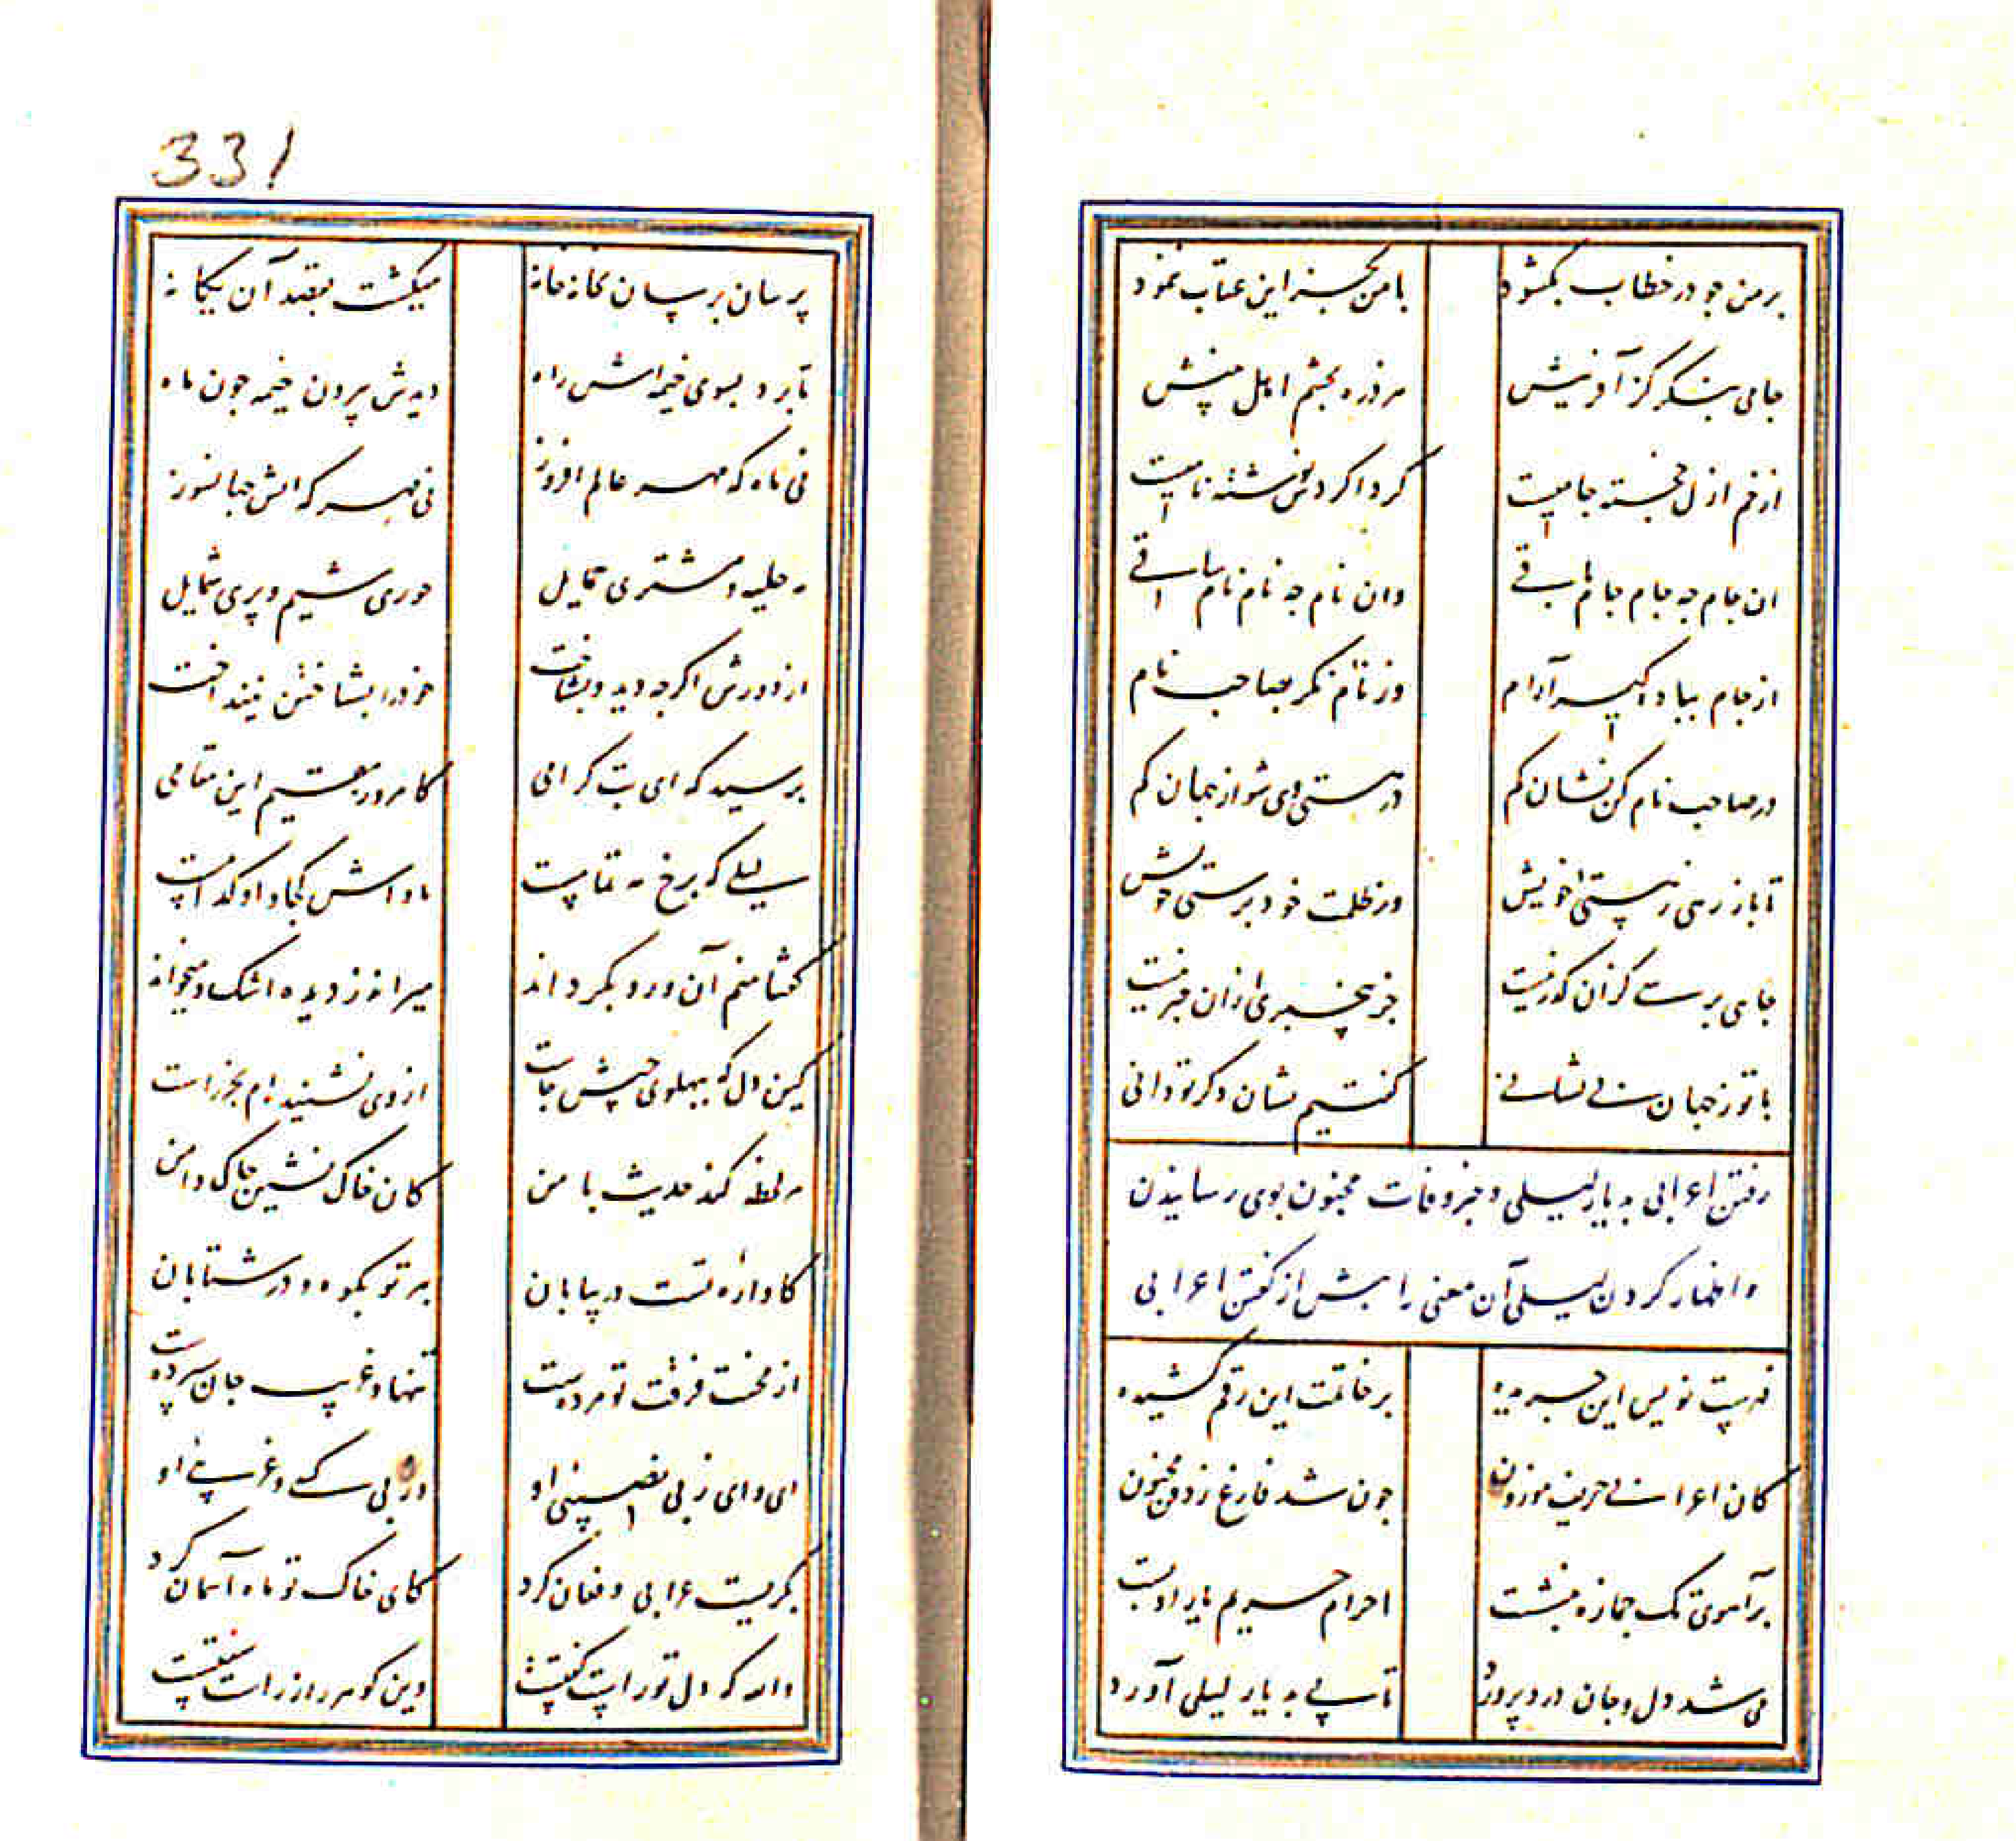 بر من چو در خطاب بگشود با من بجز این عتاب ننمود
جامی بنگر کز آفرینش هر ذره بچشم اهل بینش
از خم ازل خجسته جامیست گرداگردش نوشته نامیست
ان جام چه جام جام باقی وان نام چه نام نام ساقی
از جام بیاده گیر آرام وز نام نگر بصاحب نام
در صاحب نام کن نشان گم در هستی وی شو از جهان گم
تا باز رهی ز هستی خویش وز ظلمت خود پرستی خویش
جای برسی کزان گذر نیست جز بیخبری ازان خبر نیست
با تو ز جهان بی نشانی گفتیم نشان دگر تو دانی
رفتن اعرابی به دیار لیلی و خبر وفات مجنون بوی رسانیدن
و اظهار کردن لیلی آن معنی را پیش از گفتن اعرابی
فهرست نویس این جریده بر خاتمت این رقم کشیده
کان اعرابی حریف موزون چون شد فارغ ز دفن مجنون
بر آهوی تک جمازه بنشست احرام حریم یار او بست
می شد دل و جان درد پرورد تا پی به دیار لیلی آورد
331
پرسان پرسان بخانه خانه میگشت بقصد آن یگانه
تا برد بسوی خیمه اش راه دیدش بیرون خیمه چون ماه
نی ماه که مهر عالم افروز نی مهر که اتش جهانسوز
مه حلیه و مشتری حمایل حوری شیم و پری شمایل
از دورش اگرچه دید و بشناخت خود را بشناختن نینداخت
پرسید که ای بت گرامی کامروز مقیم این مقامی
لیلی که برخ مه تمامست ماواش کجا و او کدامست
گفتا منم آن و رو بگرداند میراند ز دیده اشک و میخواند
کین دل که بپهلوی چپش جاست از وی نشنیده ام بجز راست
هر لحظه کند حدیث با من کان خاک نشین چاک دامن
کاواره تست در بیابان بر تو بکوه و در شتابان
از محنت فرقت تو مردست تنها و غریب جان سپردست
ای وای ز بی نصیبی او وز بی کسی و غریبی او
بگریست عرابی و فغان کرد کای خاک تو ماه آسمان کرد
والله که دل تو راست گفتست وین گوهر راز راست سفتست